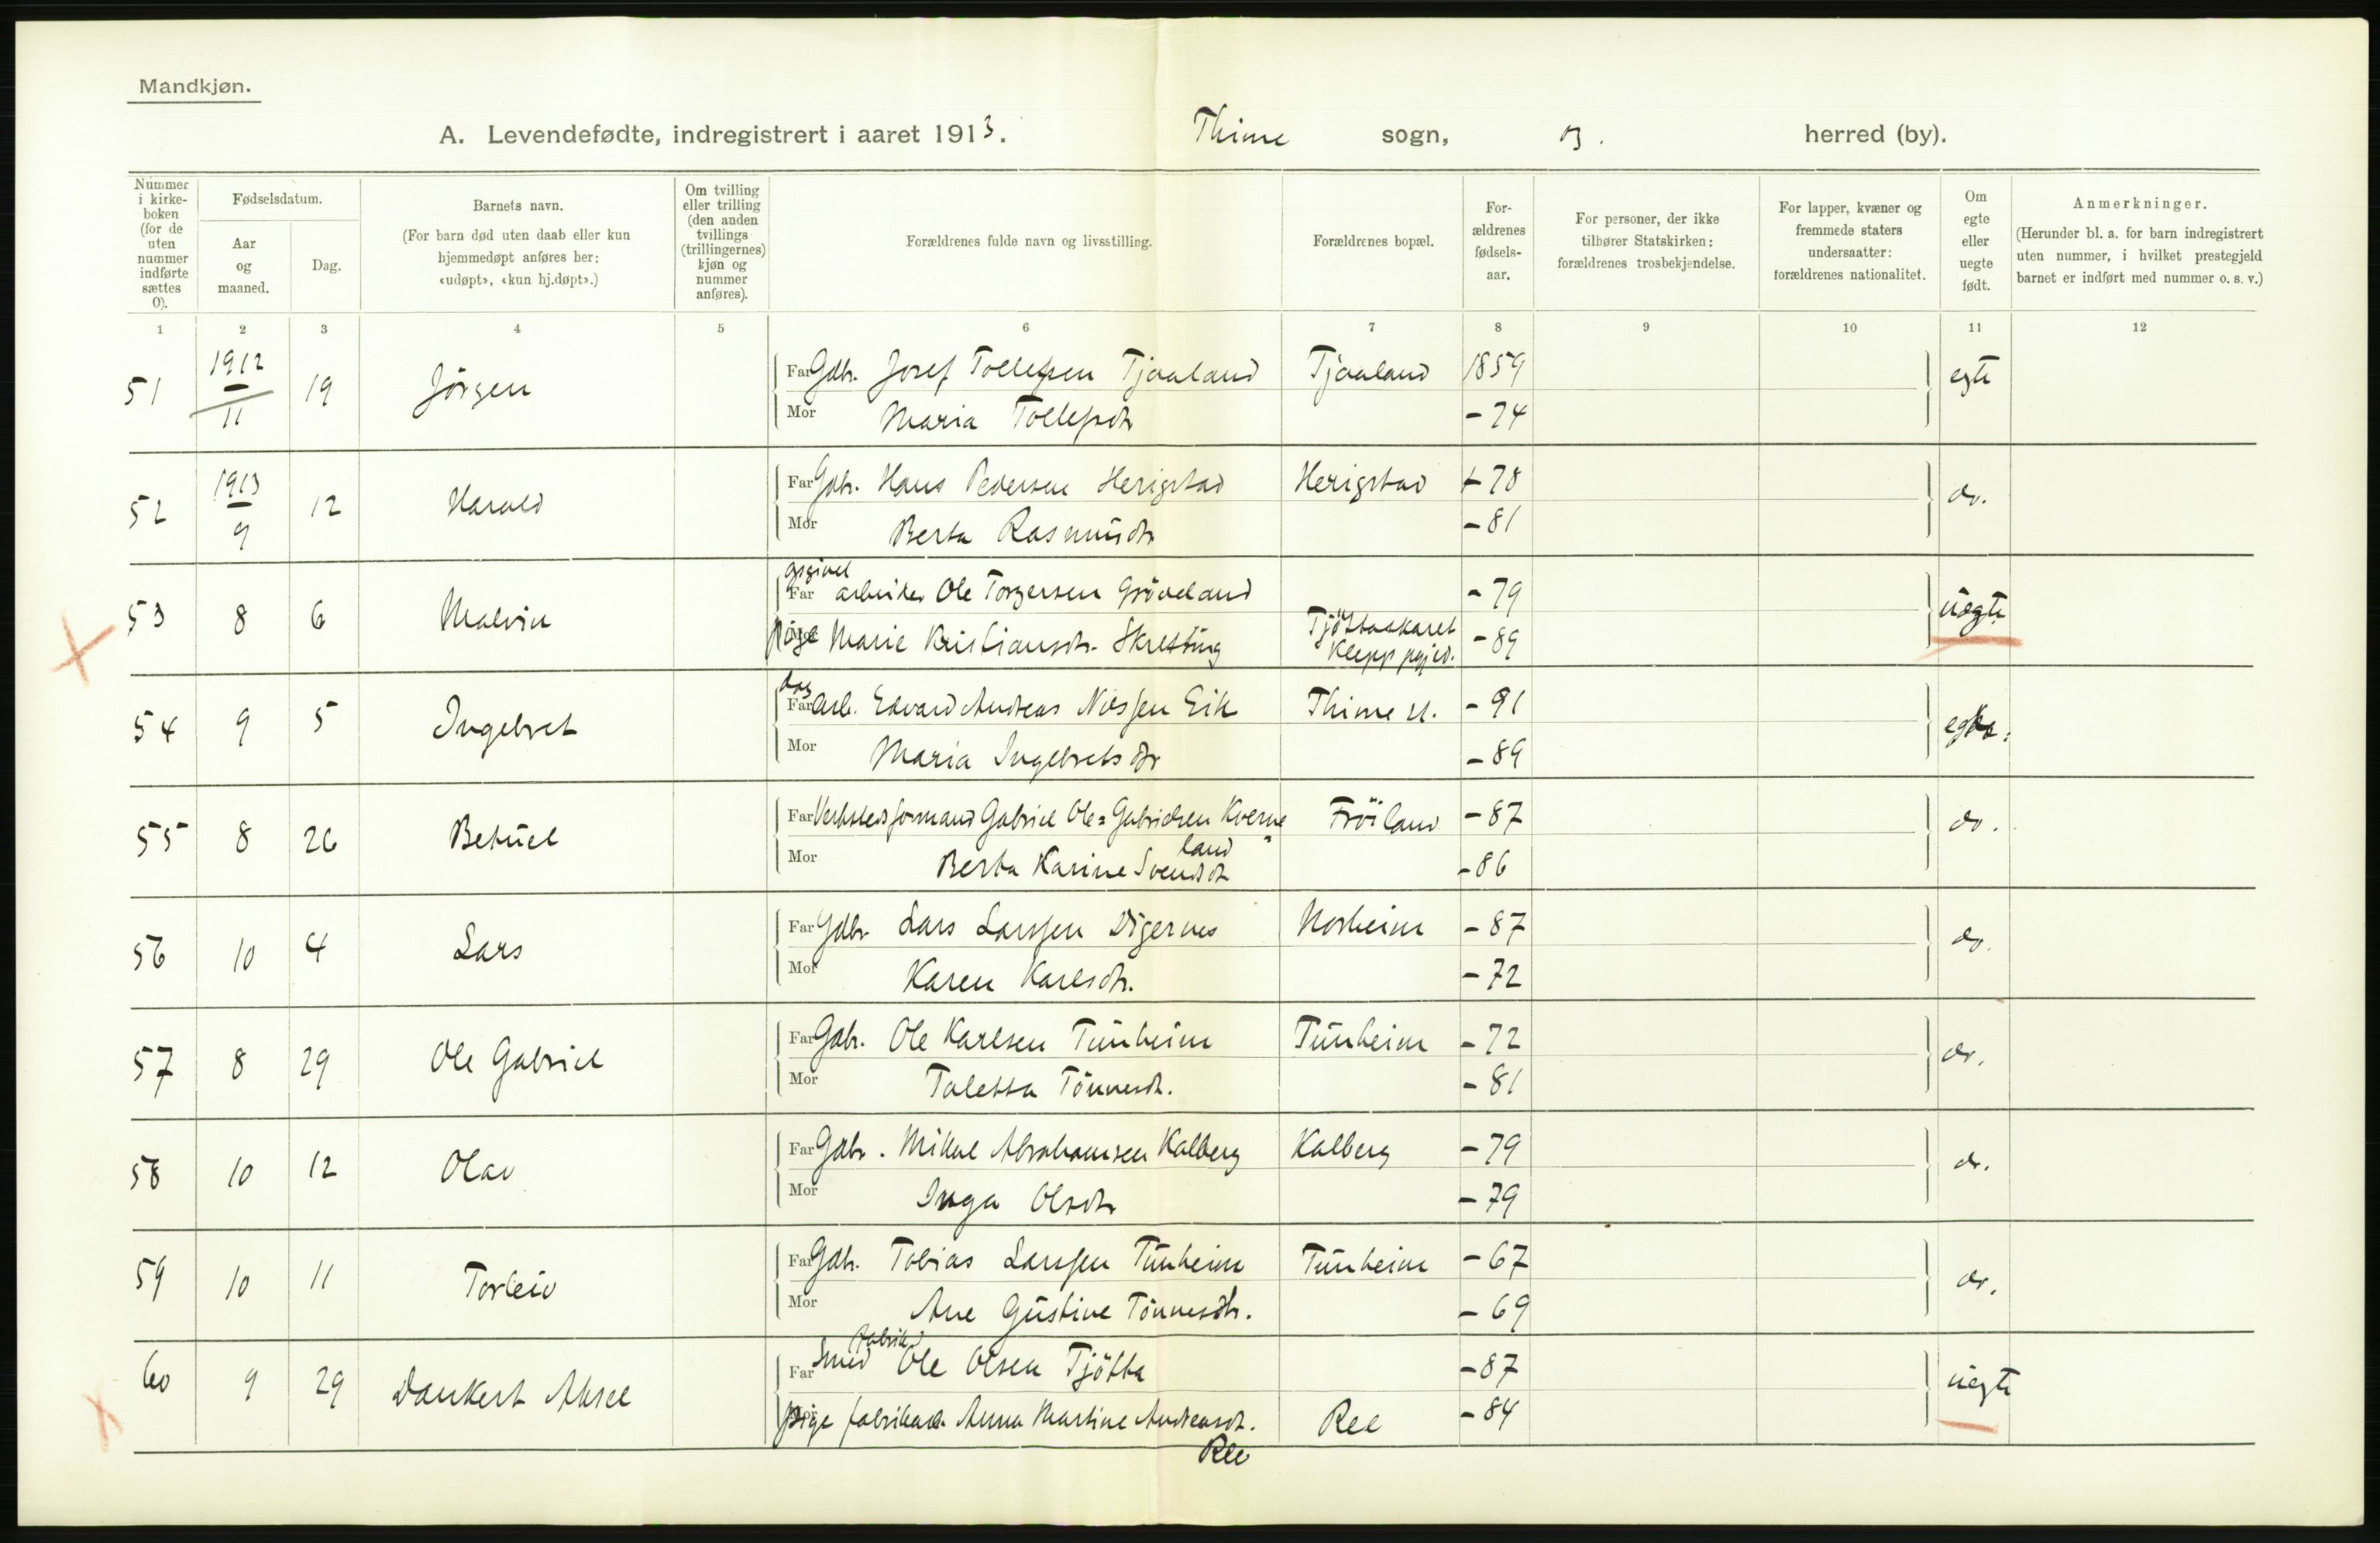 Mandkjøn.
A. Levendefødte, indregistrert i aaret 1913. Thime sogn, herred (by).
Nummer i kirkeboken (for de uten nummer indførte sættes 0).
Fødselsdatum.
Aar og maaned.
Dag.
Barnets navn.
(For barn død uten daab eller kun hjemmedøpt anføres her: «udøpt», «kun hj.døpt».)
Om tvilling eller trilling (den anden tvillings (trillingernes) kjøn og nummer anføres).
Forældrenes fulde navn og livsstilling.
Forældrenes bopæl.
Forældrenes fødselsaar.
For personer, der ikke tilhører Statskirken: forældrenes trosbekjendelse.
For lapper, kvæner og fremmede staters undersaatter: forældrenes nationalitet.
Om egte eller uegte født.
Anmerkninger.
(Herunder bl. a. for barn indregistrert uten nummer, i hvilket prestegjeld barnet er indført med nummer o. s. v.)
1 2 3 4 5 6 7 8 9 10 11 12
51 1912 11 19 Jörgen Far Gdbr. Josef Tollefsen Tjaaland Tjaaland 1859 egte
Mor Maria Tollefsdtr - 74
52 1913 9 12 Harald Far Gdbr. Hans Pedersen Herigstad Herigstad - 78 do.
Mor Berta Rasmusdtr - 81
53 8 6 Malvin Far arbeider Ole Torgersen Grödeland - 79 uegte
Mor pige Marie Kristiansdtr. Skretting Tjöttaskaret - 89
Klepp pgjld.
54 9 5 Ingebret Far dagarb. Edvard Andreas Nilssen Eik Thime st. - 91 egte
Mor Maria Ingebretsdtr - 89
55 8 26 Betuel Far Verkstedsformand Gabriel Ole Gabrielsen Kverne Fröiland - 87 do.
land
Mor Berta Karine Svendsdtr - 86
56 10 4 Lars Far Gdbr Lars Larssen Digernes Norheim - 87 do.
Mor Karen Karlsdtr. - 72
57 8 29 Ole Gabriel Far Gdbr. Ole Karlsen Tunheim Tunheim - 72 do.
Mor Taletta Tönnesdtr. - 81
58 10 12 Olav Far Gdbr. Mikal Abrahamsen Kalberg Kalberg - 79 do.
Mor Inga Olsdtr - 79
59 10 11 Torleiv Far Gdbr. Tobias Larssen Tunheim Tunheim - 67 do.
Mor Ane Gustine Tönnesdtr. - 69
60 9 29 Dankert Aksel Far fabrik Smed Ole Olsen Tjötta - 87 uegte
Mor pige fabrikarb. Anna Martine Andreasdt. Ree - 84
Ree